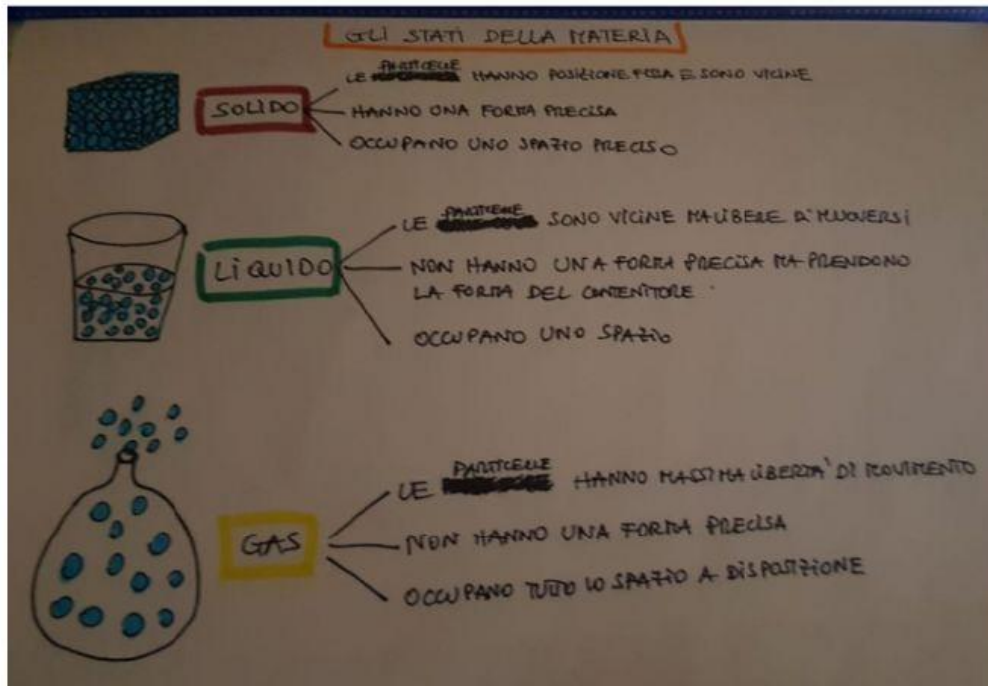 GLI STATI DELLA MATERIA
LE PARTICELLE HANNO POSIZIONE FISSA E SONO VICINE
SOLIDO
HANNO UNA FORMA PRECISA
OCCUPANO UNO SPAZIO PRECISO
LE PARTICELLE SONO VICINE MA LIBERE DI MUOVERSI
LIQUIDO
NON HANNO UNA FORMA PRECISA MA PRENDONO
LA FORMA DEL CONTENITORE
OCCUPANO UNO SPAZIO
LE PARTICELLE HANNO MASSIMA LIBERTA' DI MOVIMENTO
GAS
NON HANNO UNA FORMA PRECISA
OCCUPANO TUTTO LO SPAZIO A DISPOSIZIONE